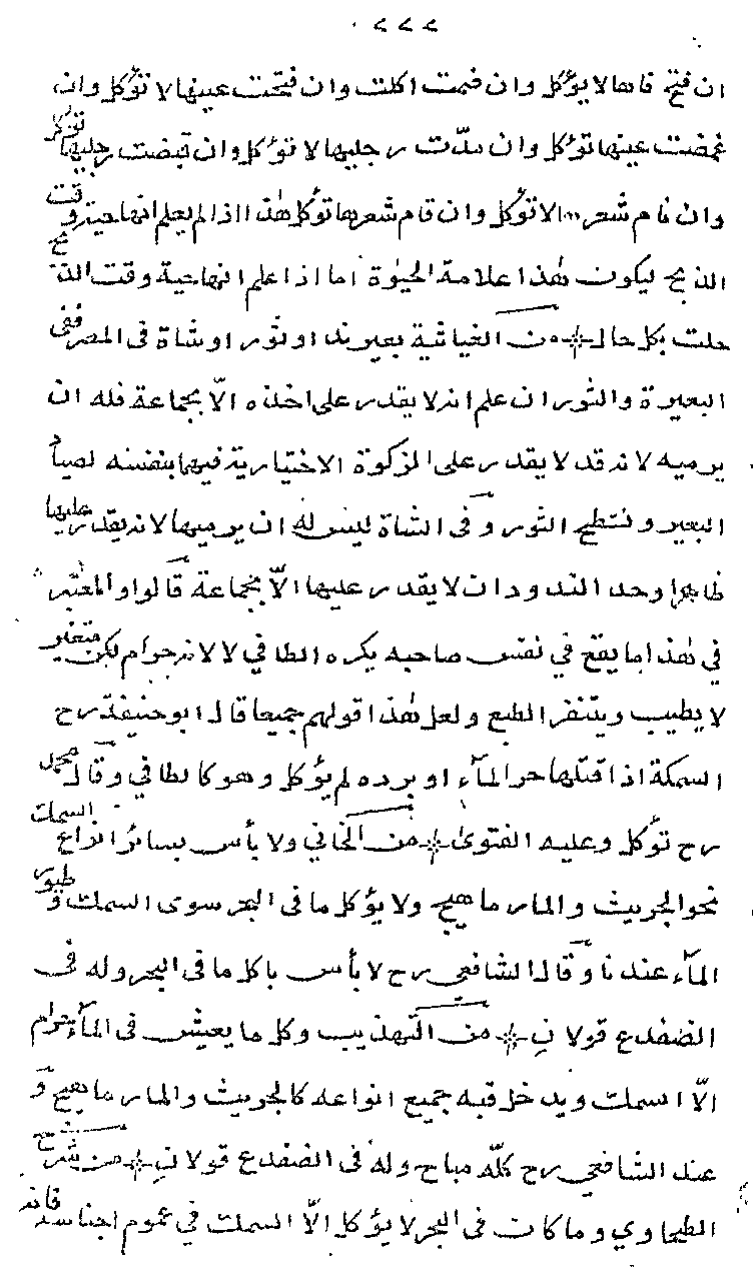 ٢٢٢
ان فتح فاها لا يؤكل وان ضمت اكلت وان فتحت عينها لا تؤكل وان
غمضت عينها تؤكل وان مدّت رجليها لا تؤكل وان قبضت رجليها تؤكل
وان نام شعرها لا تؤكل وان قام شعرها تؤكل هٰذا اذا لم يعلم انها حية وقت
الذبح ليكون هٰذا علامة الحيٰوة اما اذا علم انها حية وقت الذبح
حلت بكل حال ۞ من الغياثية بعير ند او ثور او شاة فى المصر ففى
البعيرة والثور ان علم انه لا يقدر على اخذه الّا بجماعة فله ان
يرميه لانه قد لا يقدر على الزكوة الاختيارية فيهما بنفسه لصيا
البعير ونتطح الثور وفى الشاة ليس له ان يرميها لانه يقدر عليها
ظاهرا وحد الندود ان لا يقدر عليها الّا بجماعة قالوا والمعتبر
في هٰذا ما يقع في نفس صاحبه يكره الطافي لا لانه حرام لكن متغير
لا يطيب ويتنفر الطبع ولعل هٰذا قولهم جميعا قال ابو حنيفة رح
السمكة اذا قتلها حر المآء او برده لم يؤكل وهو كالطافي وقال محمد
رح تؤكل وعليه الفتوى ۞ من الخاني ولا بأس بسائر انواع السمك
نحو الجريث والمارماهيج ولا يؤكل ما فى البحر سوى السمك وطيور
المآء عندنا وقال الشافعي رح لا بأس باكل ما فى البحر وله فى
الضفدع قولانِ ۞ من التهذيب وكل ما يعيش فى المآء حرام
الّا السمك ويدخل فيه جميع انواعه كالجريث والمارماهيج و
عند الشافعي رح كلّه مباح وله فى الضفدع قولانِ ۞ من شرح
الطحاوي وما كان فى البحر لا يؤكل الّا السمك في عموم اجناسه فانه